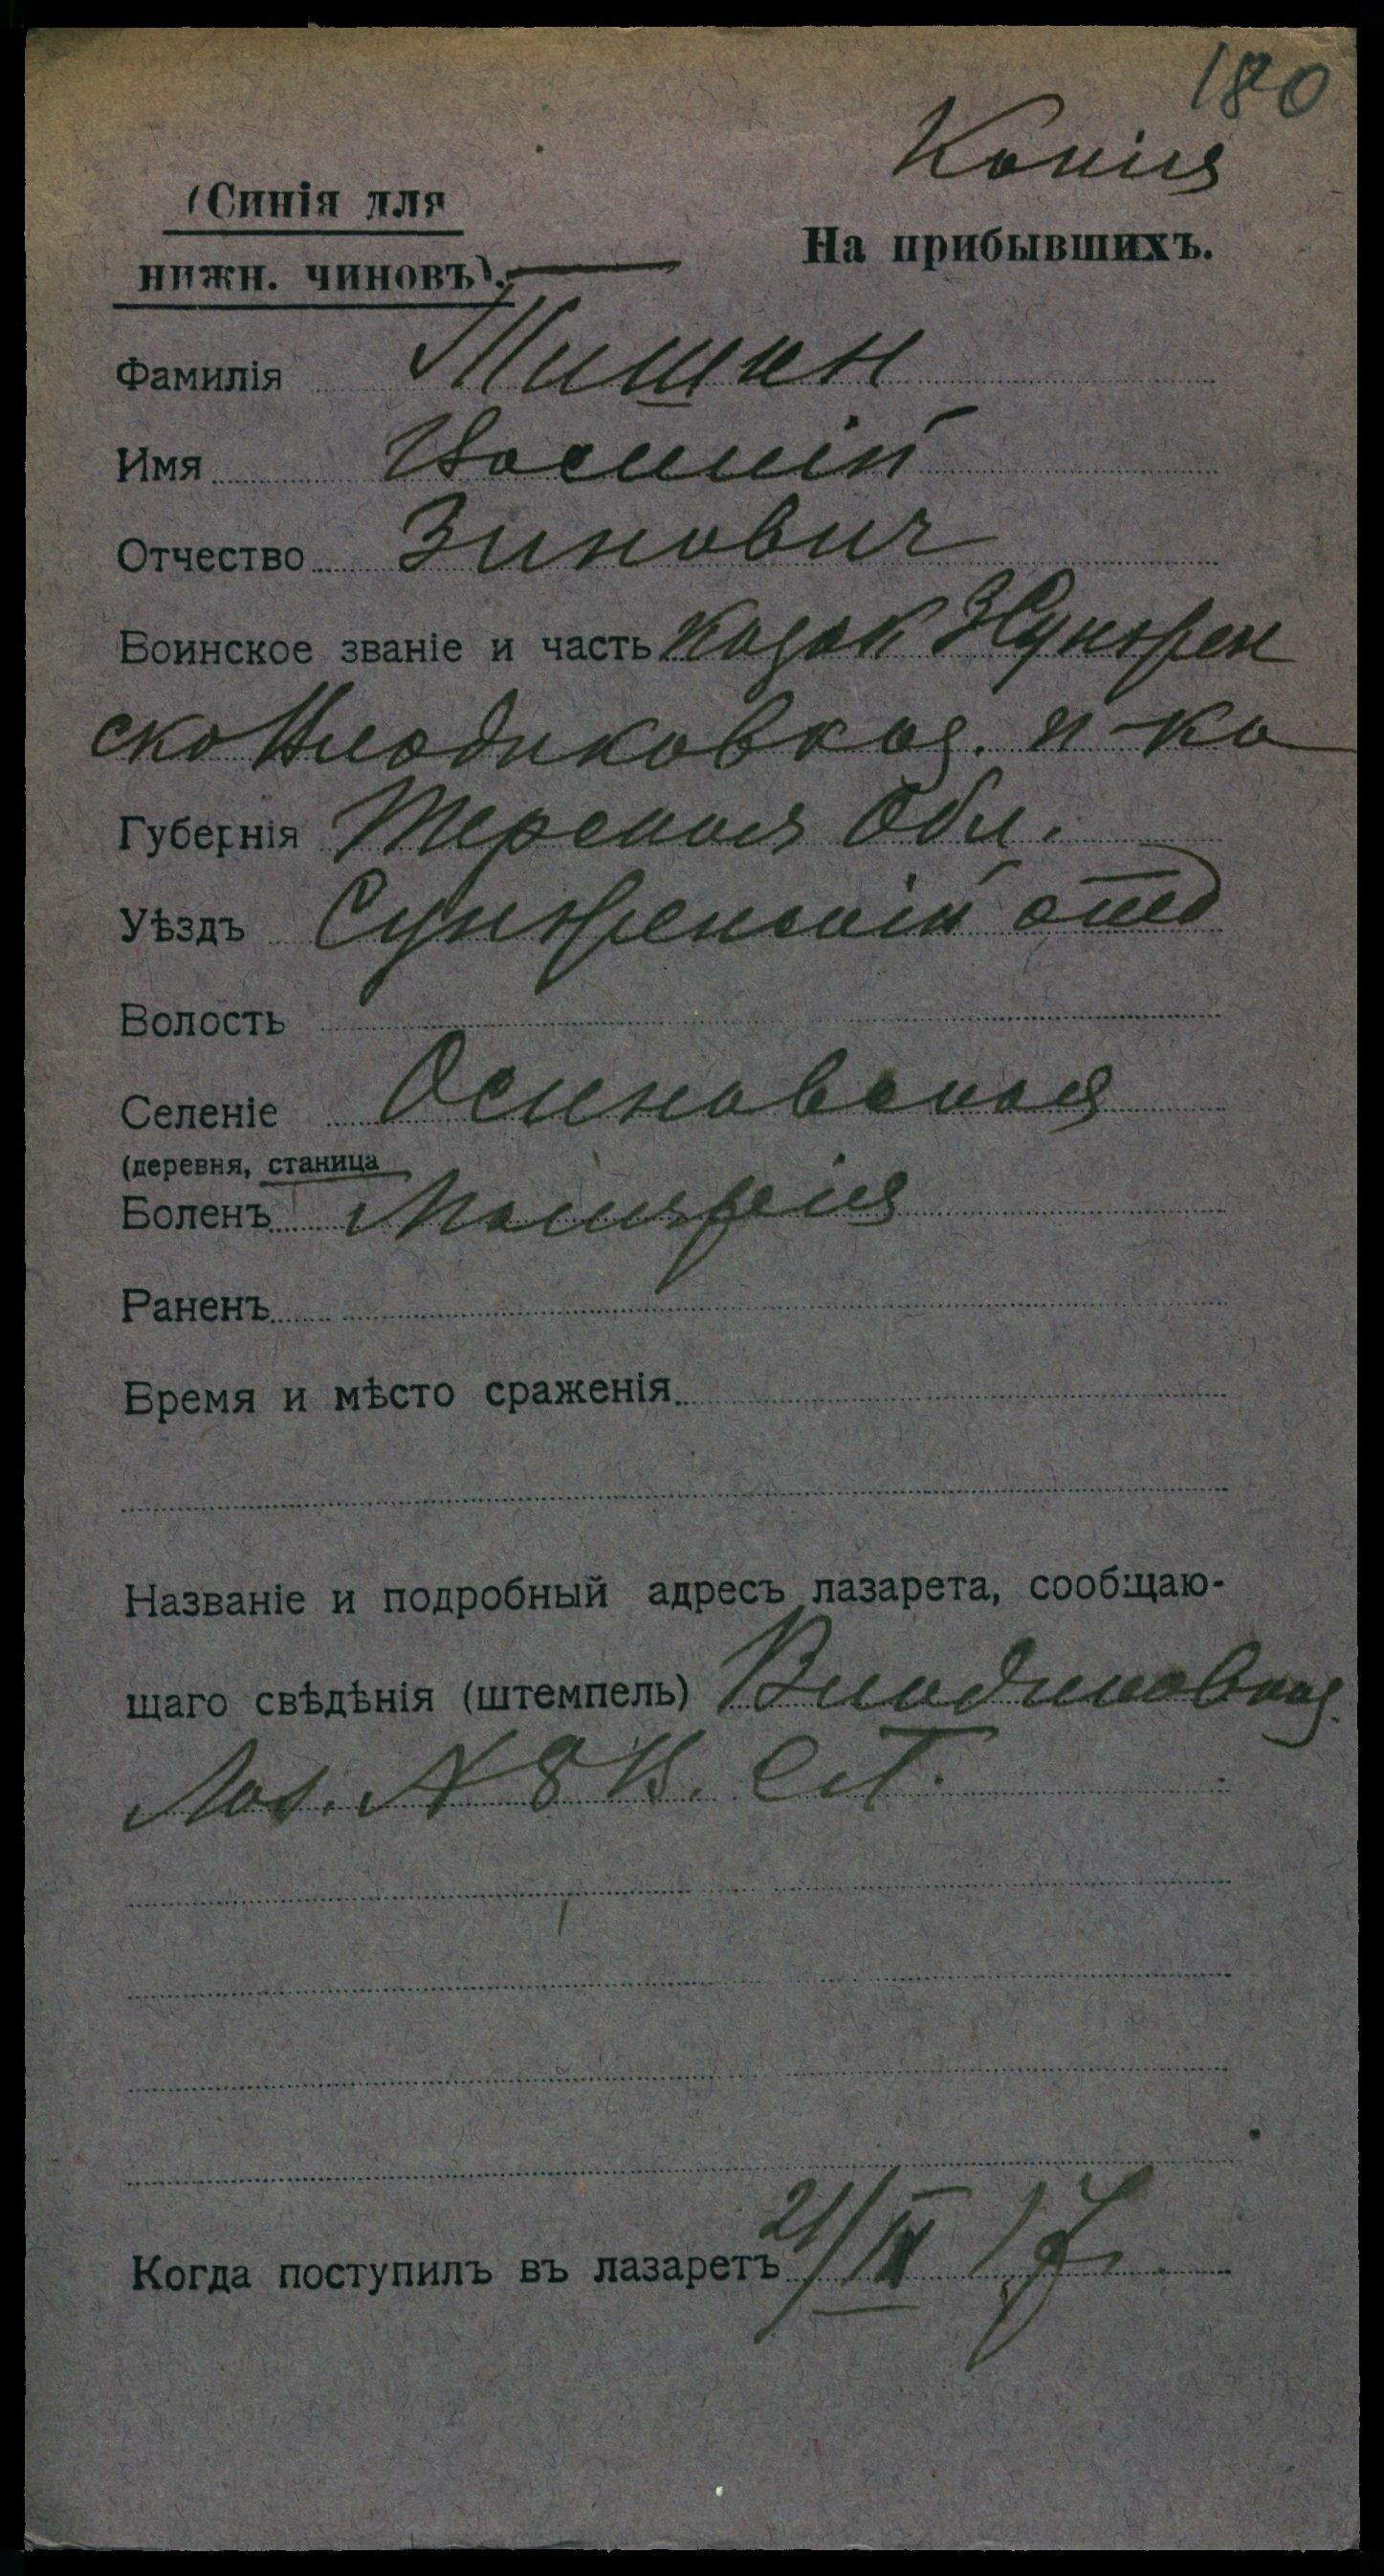 180
Копия
(Синія для
нижн. чиновъ).
На прибывшихъ.
Фамилія Мишин
Имя Василій
Отчество Зинович
Воинское званіе и часть Казак 3 Сунжен
ско Владикавказ. п-ка
Губернія Терская Обл.
Уѣздъ Сунженскій отд
Волость
Селеніе Осиновская
(деревня, станица
Боленъ Малярія
Раненъ
Время и мѣсто сраженія
Названіе и подробный адресъ лазарета, сообщаю-
щаго свѣдѣнія (штемпель) Владикавказ.
Лаз. N 8 В. С.Г.
Когда поступилъ въ лазаретъ 21/II 17 г.